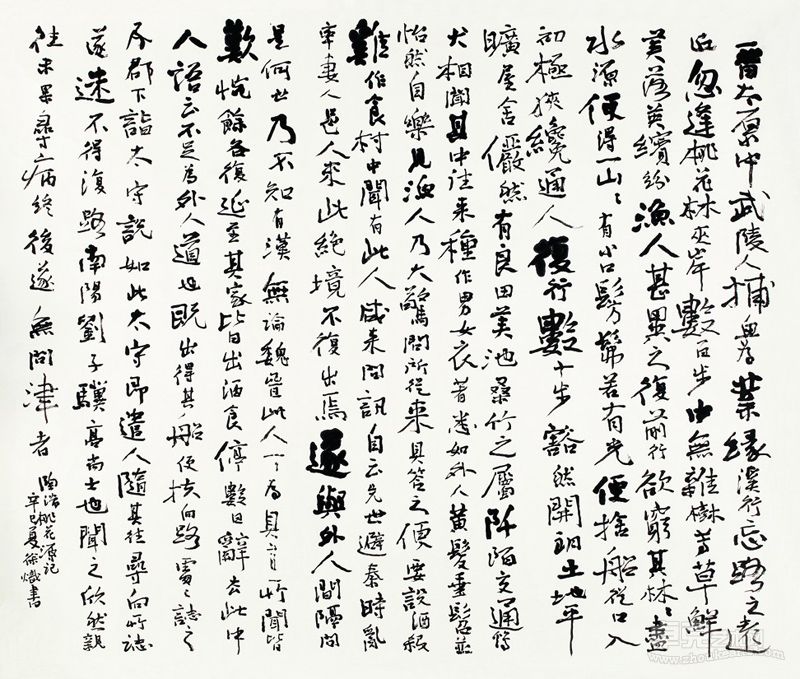 晉太原中武陵人捕魚為業緣溪行忘路之遠
近忽逢桃花林夾岸數百步中無雜樹芳草鮮
美落英繽紛漁人甚異之復前行欲窮其林々盡
水源便得一山々有小口髣髴若有光便捨船從口入
初極狹纔通人復行數十步豁然開朗土地平
曠屋舍儼然有良田美池桑竹之屬阡陌交通雞
犬相聞其中往來種作男女衣著悉如外人黃髮垂髫並
怡然自樂見漁人乃大驚問所從來具答之便要設酒殺
雞作食村中聞有此人咸來問訊自云先世避秦時亂
率妻人邑人來此絕境不復出焉遂與外人間隔問
是何世乃不知有漢無論魏晉此人一一為具言所聞皆
歎惋餘各復延至其家皆出酒食停數日辭去此中
人語云不足為外人道也既出得其船便扶向路處々誌之
及郡下詣太守說如此太守即遣人隨其往尋向所誌
遂迷不得復路南陽劉子驥高尚士也聞之欣然親
往未果尋病終後遂無問津者
陶潛桃花源記
辛巳夏徐熾書